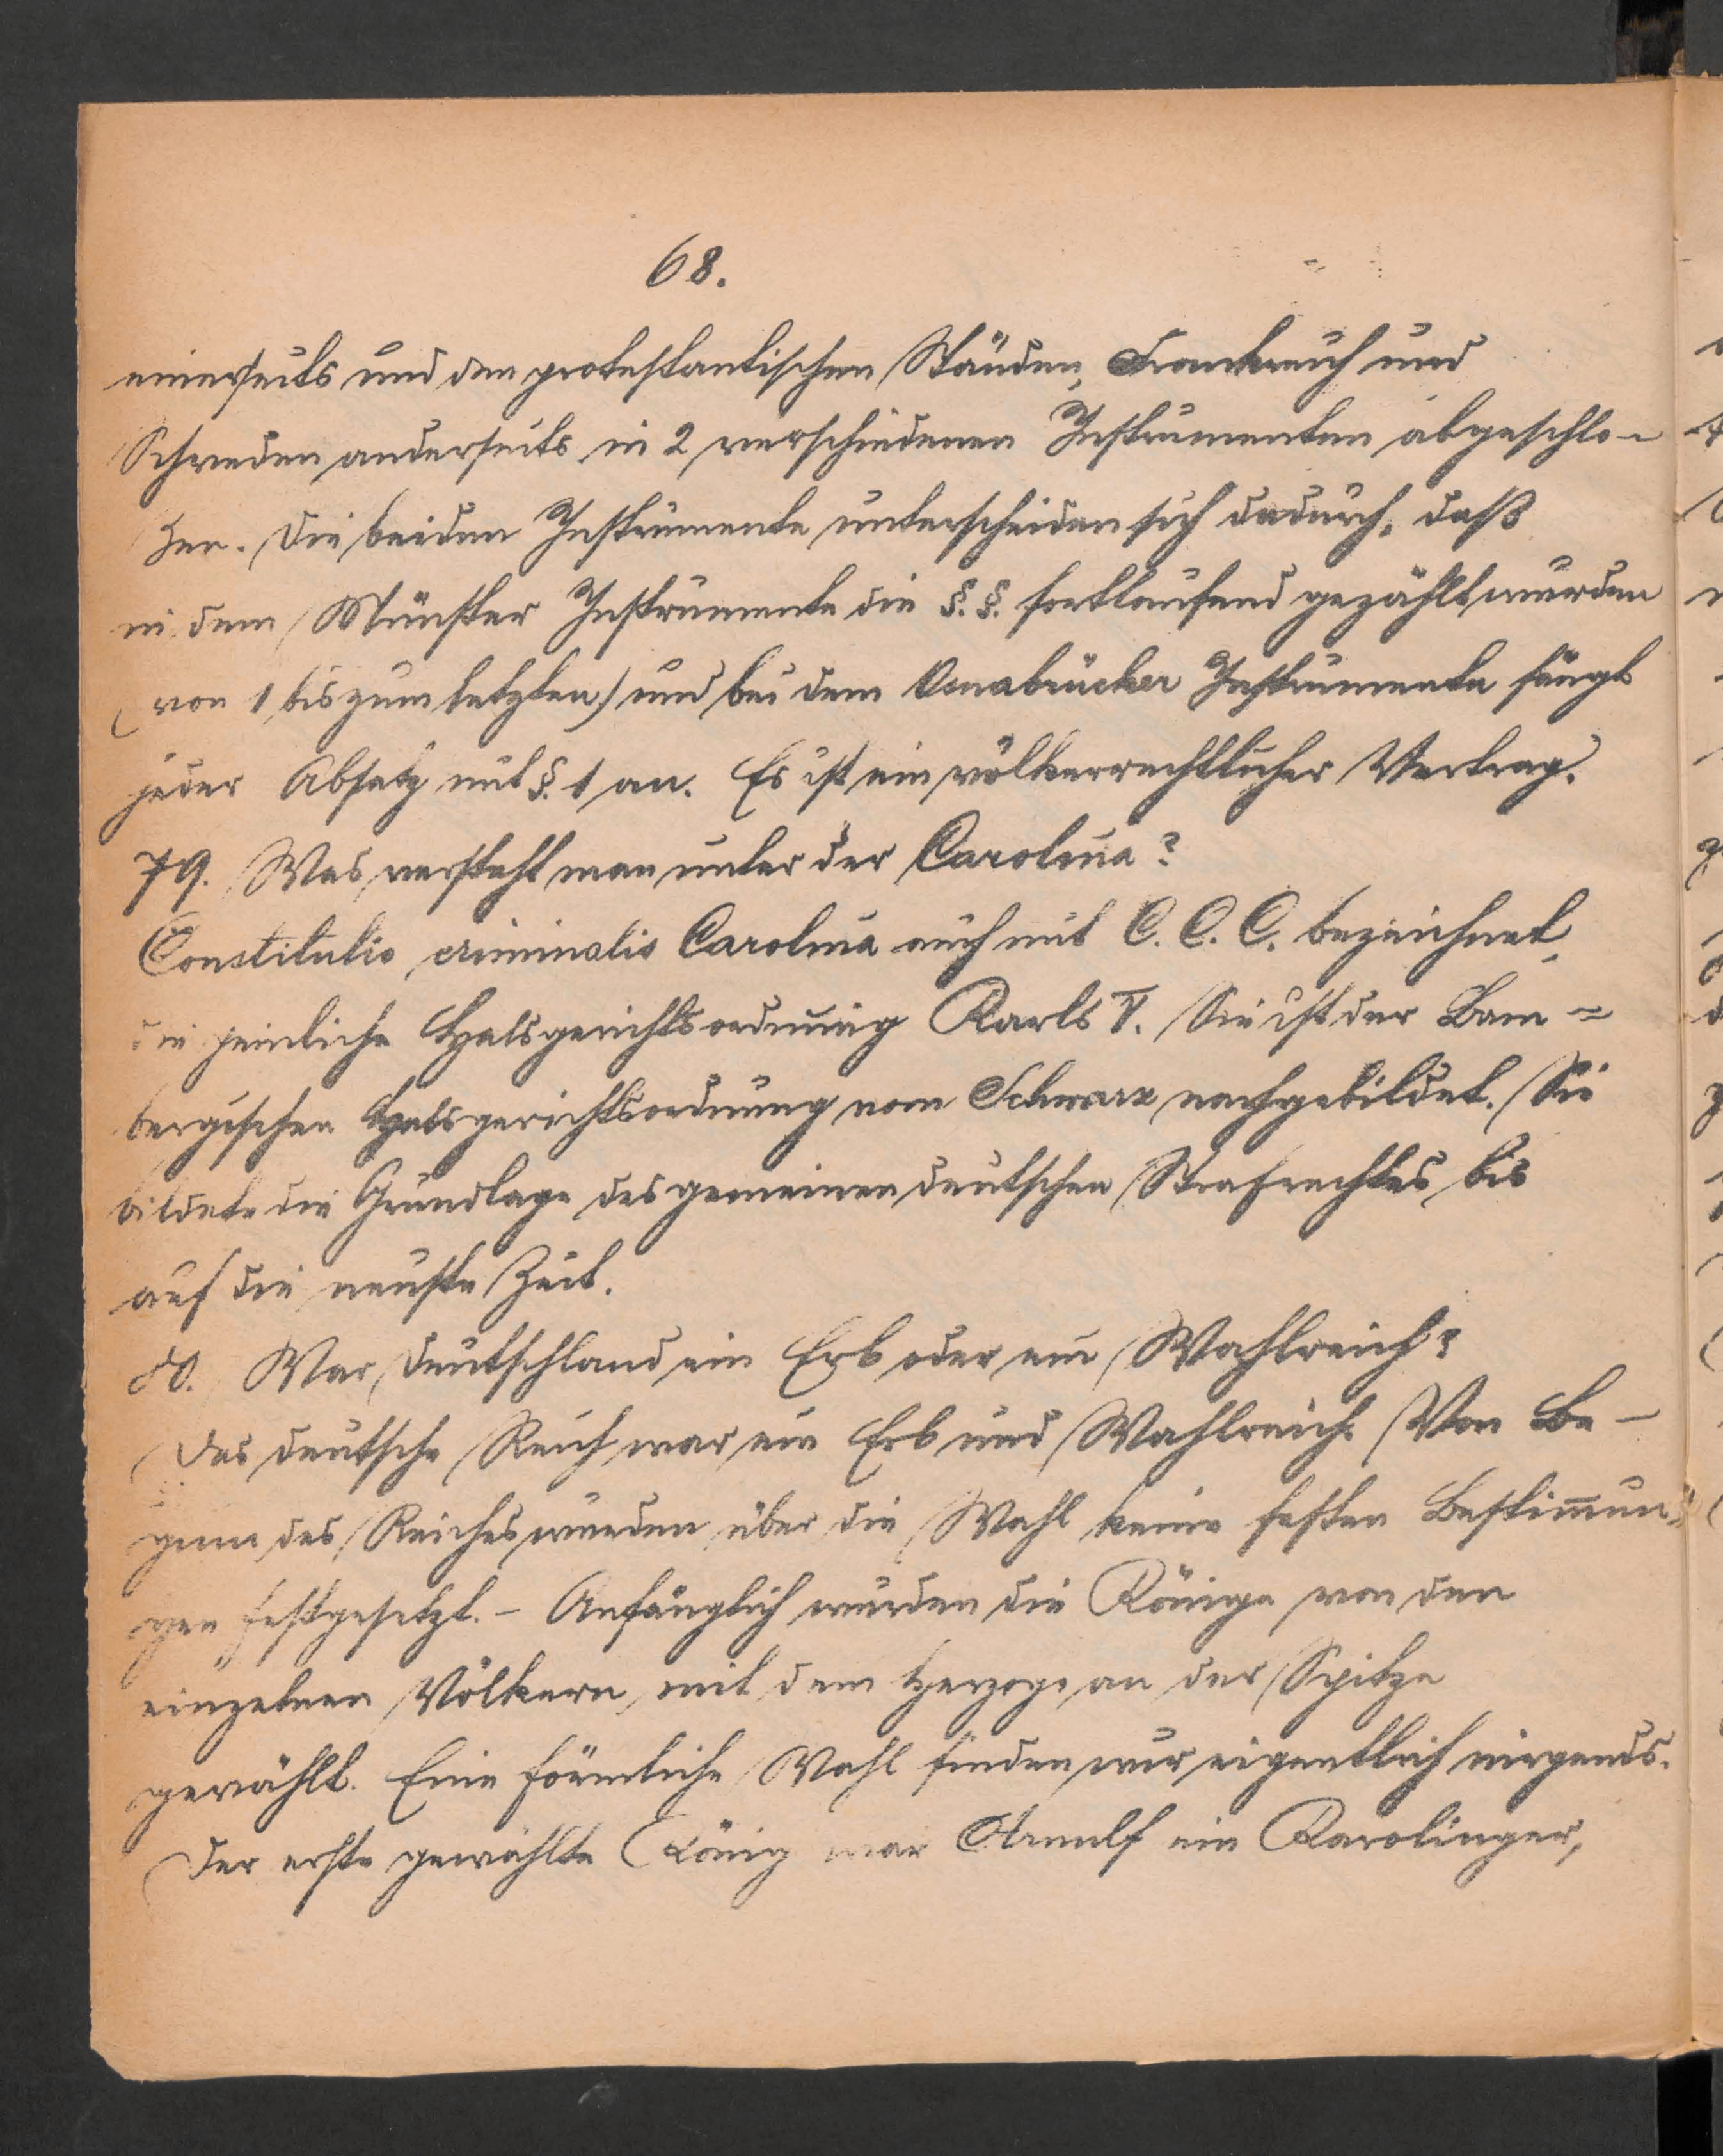 68.
einerseits und den protestantischen Ständen, Frankreich und
Schweden anderseits in 2 verschiedenen Instrumenten abgeschlo-
ßen. Die beiden Instrumente unterscheiden sich dadurch, daß
in dem Münster Instrumente die §.§. fortlaufend gezählt wurden
(von 1 bis zum letzten) und bei dem Osnabrücker Instrumente fängt
jeder Absatz mit §. 1 an. Es ist ein völkerrechtlicher Vertrag.
79. Was versteht man unter der Carolina?
Constitutio criminalis Carolina auch mit C. C. C. bezeichnet,
die peinliche Halsgerichtsordnung Karls V. Sie ist der Bam=
bergischen Halsgerichtsordnung vom Schwarz nachgebildet. Sie
bildete die Grundlage des gemeinen deutschen Strafrechtes bis
auf die neuste Zeit.
80. War Deutschland ein Erb oder ein Wahlreich?
Das deutsche Reich war ein Erb und Wahlreich. Von Be-
ginn des Reiches wurden über die Wahl keine festen Bestim̄un=
gen festgesetzt. - Anfänglich wurden die Könige von den
einzelnen Völkern mit dem Herzoge an der Spitze
gewählt. Eine förmliche Wahl finden wir eigentlich nirgends.
Der erste gewählte König war Arnulf ein Karolinger,